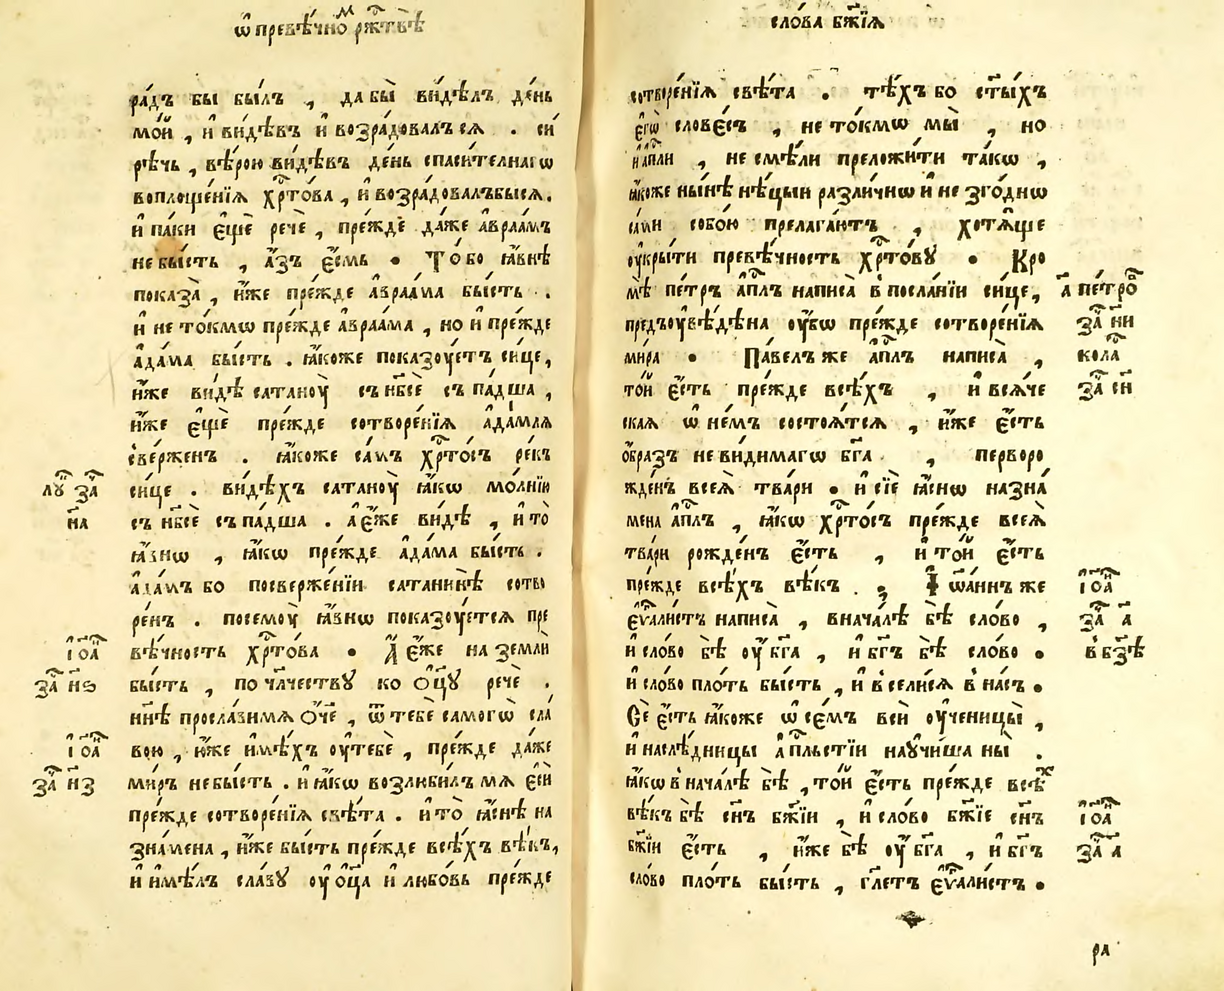 ѡ҆ превѣ́чноⷨ ржⷭ҇твѣ̀
ра́дъ бы бы́лъ , да бы̀ ви́дѣлъ де́нь
мо́й , и҆ ви́дѣвъ и҆ возра́довалъ сѧ . си́
рѣчь , вѣ́рою ви́дѣвъ де́нь спаси́телнагѡ
воплоще́нїѧ хрⷭ҇то́ва , и҆ возра́довалъбысѧ.
и҆ па́ки є҆щѐ речѐ , пре́жде да́же а҆враа́мъ
не бы́сть , а҆́зъ є҆́смь • То́ бо ꙗ҆́внѣ
показа̀ , и҆́же пре́жде а҆враа́ма бы́сть .
и҆ не то́кмѡ пре́жде а҆враа́ма , но и҆ пре́жде
а҆да́ма бы́сть . ꙗ҆́коже показꙋ́етъ си́це,
и҆́же ви́дѣ сатанꙋ̀ съ нб҃сѐ съ па́дша ,
и҆́же є҆щѐ пре́жде сотворе́нїѧ а҆да́млѧ
све́рженъ . ꙗ҆́коже са́мъ хрⷭ҇то́съ ре́къ
си́це . ви́дѣхъ сатанꙋ̀ ꙗ҆́кѡ мо́лнїю
лꙋⷦ҇ заⷱ҇
съ нб҃сѐ съ па́дша . а҆ є҆́же ви́дѣ , и҆ то̀
н҃а
ꙗ҆́внѡ , ꙗ҆́кѡ пре́жде а҆да́ма бы́сть .
а҆да́мъ бо посверже́нїи сатанинѣ сотво
ре́нъ . посемꙋ̀ ꙗ҆́внѡ показꙋ́етсѧ пре
вѣ́чность хрⷭ҇то́ва • А҆ є҆́же на землѝ
і҆ѡⷩ҇
бы́сть , по чл҃честву ко ѻ҆ц҃у речѐ .
заⷱ҇ н҃ѕ
нн҃ѣ просла́вимѧ ѻ҆́ч҃е , ѿ тебѐ самогѡ̀ сла́
вою , ю҆́же и҆мѣ́хъ ᲂу҆тебѐ , пре́жде да́же
і҆ѡⷩ҇
ми́ръ не бы́сть . и҆ ꙗ҆́кѡ возлюби́лъ мѧ є҆сѝ
заⷱ҇ н҃з
пре́жде сотворе́нїѧ свѣ́та . и҆ то̀ ꙗ҆́снѣ на
зна́мена , и҆́же бы́сть пре́жде всѣ́хъ вѣ́къ,
и҆ и҆мѣ́лъ сла́ву ᲂу҆ ѻ҆ц҃а̀ и҆ любо́вь пре́жде
сло́ва бж҃їѧ
сотворе́нїѧ свѣ́та . тѣ́хъ бо ст҃ы́хъ
є҆гѡ̀ слове́съ , не то́кмѡ мы̀ , но
и҆ а҆пⷭ҇ли , не смѣ́ли преложи́ти та́кѡ ,
ꙗ҆́коже ны́нѣ нѣ́цыи разли́чнѡ и҆ не зго́днѡ
са́ми собо́ю прелага́ютъ , хотѧ́ще
ᲂу҆кры́ти превѣ́чность хрⷭ҇то́ву • Кро
мѣ̀ пе́тръ а҆пⷭ҇лъ написа̀ в посла́нїи си́це,
а҃ петроⷡ҇
предъᲂувѣ́дѣна ᲂу҆́бѡ пре́жде сотворе́нїѧ
заⷱ҇ н҃и
ми́ра • Па́велъ же а҆пⷭ҇лъ написа̀ ,
колаⷭ҇
то́й є҆́сть пре́жде всѣ́хъ , и҆ всѧ́че
заⷱ҇ с҃н
скаѧ ѡ҆ не́мъ состоѧ́тсѧ , и҆́же є҆́сть
ѻ҆́бразъ неви́димагѡ бг҃а , перворо
жде́нъ всеѧ̀ тва́ри • и҆ сїѐ ꙗ҆́снѡ назна́
мена а҆пⷭ҇лъ , ꙗ҆́кѡ хрⷭ҇то́съ пре́жде всеѧ̀
тва́ри рожде́нъ є҆́сть , и҆ то́й є҆́сть
пре́жде всѣ́хъ вѣ́къ . І҆ѡа́ннъ же
і҆ѡⷩ҇
є҆ѵⷢ҇али́стъ написа̀ , внача́лѣ бѣ̀ сло́во ,
заⷱ҇ а҃
и҆ сло́во бѣ̀ ᲂу҆ бг҃а , и҆ бг҃ъ бѣ̀ сло́во •
и҆ сло́во пло́ть бы́сть , и҆ в селисѧ в на́съ •
Сѐ є҆́сть ꙗ҆́коже ѡ҆ се́мъ всѝ ᲂу҆ченицы̀ ,
и҆ наслѣ́дницы а҆пⷭ҇льстїи наꙋчи́ша ны̀ .
ꙗ҆́кѡ в нача́лѣ бѣ̀ , то́й є҆́сть пре́жде всѣⷯ
вѣ́къ бѣ̀ сн҃ъ бж҃їи , и҆ сло́во бж҃їе сн҃ъ
і҆ѡⷩ҇
бж҃їи є҆́сть , и҆́же бѣ̀ ᲂу҆ бг҃а , и҆ бг҃ъ
заⷱ҇ а҃
сло́во пло́ть бы́сть , гл҃етъ є҆ѵⷢ҇али́стъ •
ра